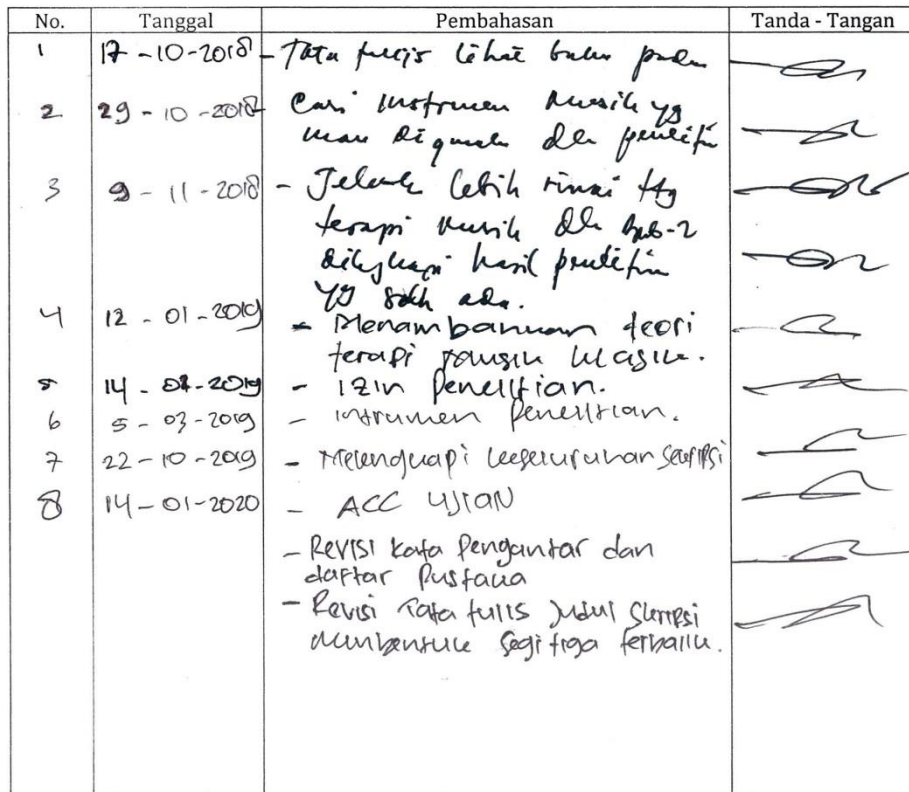 No. Tanggal Pembahasan Tanda - Tangan
1 17 - 10 - 2018 - Tata tulis lihat buku
2 29 - 10 - 2018 Cari instrumen musik yg
mau digunak dlm penelitin
3 9 - 11 - 2018 - Jelask lebih rinci ttg
terapi musik dlm Bab-2
dilengkapi hasil penelitin
yg sdh ada.
4 12 - 01 - 2019 - Menambahkan teori
terapi musik klasik.
5 14 - 02 - 2019 - Izin Penelitian.
6 5 - 03 - 2019 - instrumen Penelitian.
7 22 - 10 - 2019 - Melengkapi keseluruhan skripsi
8 14 - 01 - 2020 - ACC UJIAN
- Revisi kata Pengantar dan
daftar Pustaka
- Revisi Tata tulis Judul Skripsi
membentuk segitiga terbalik.